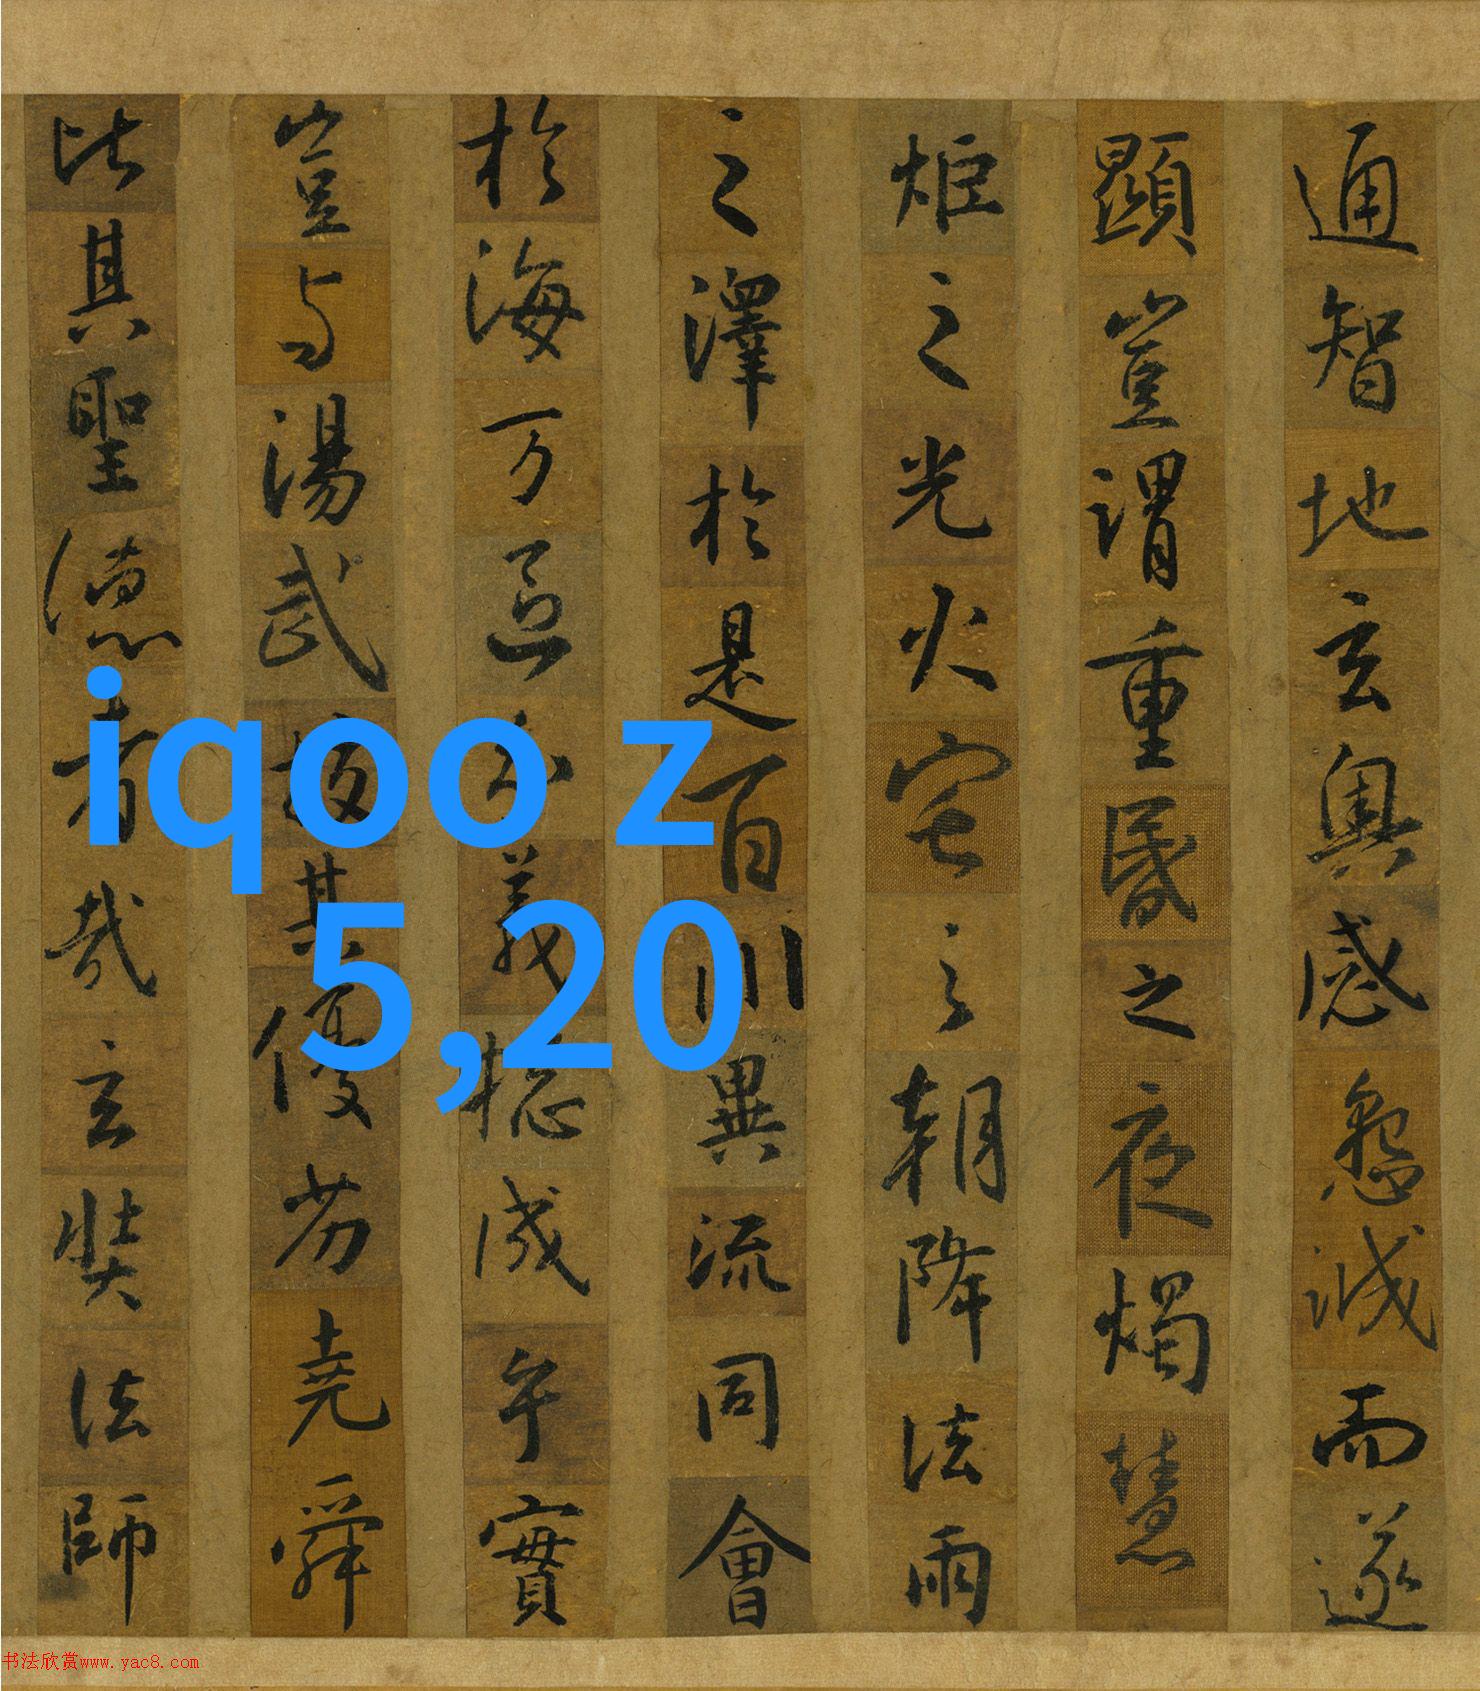 通智地玄奧感懇誠而遂
顯豈謂重昏之夜燭慧
炬之光火宅之朝降法雨
之澤於是百川異流同會
於海万區分義揔成乎實
豈与湯武挍其優劣堯舜
比其聖德者哉玄奘法師
iqoo z
5,20
书法欣赏www.yac8.com